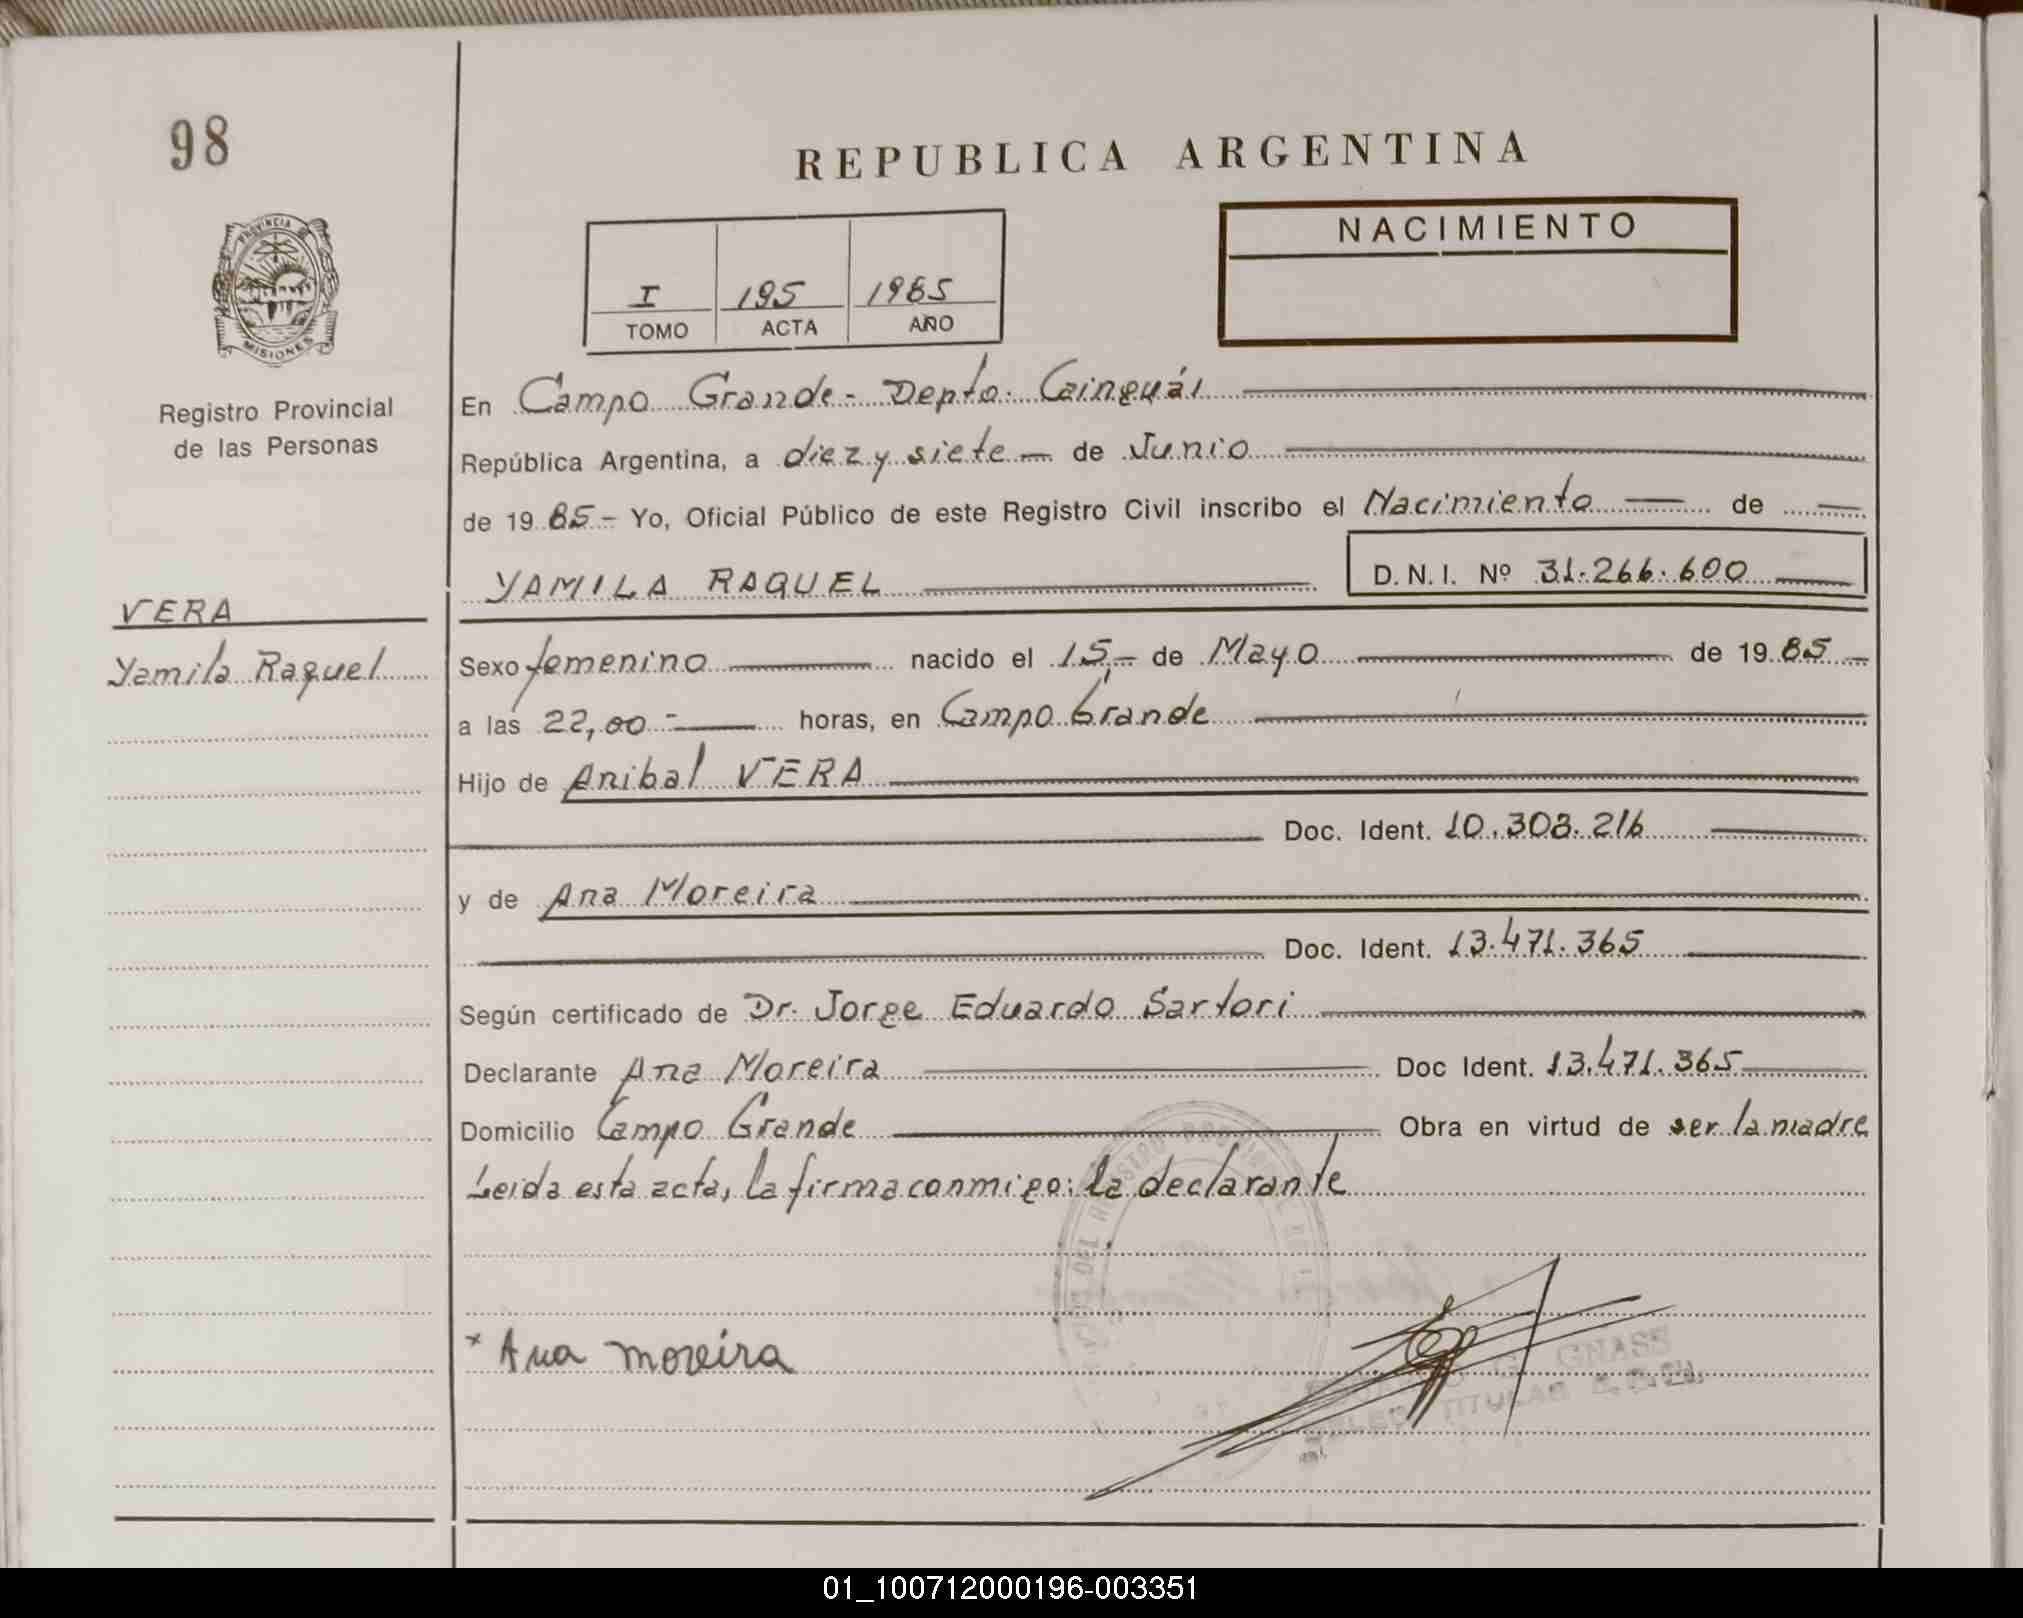 98
REPUBLICA ARGENTINA
PROVINCIA DE
MISIONES
NACIMIENTO
I 195 1985
TOMO ACTA AÑO
Registro Provincial
de las Personas
En Campo Grande - Depto. Cainguás
República Argentina, a diez y siete — de Junio
de 19 85 - Yo, Oficial Público de este Registro Civil inscribo el Nacimiento — de —
YAMILA RAQUEL D.N.I. Nº 31.266.600
VERA
Yamila Raquel
Sexo femenino nacido el 15,- de Mayo de 19 85
a las 22,00 - horas, en Campo Grande
Hijo de Anibal VERA
Doc. Ident. 10.308.216
y de Ana Moreira
Doc. Ident. 13.471.365
Según certificado de Dr. Jorge Eduardo Sartori
Declarante Ana Moreira Doc Ident. 13.471.365
Domicilio Campo Grande Obra en virtud de ser la madre
Leida esta acta, la firma conmigo: la declarante
x Ana moreira
G. GNASS
TITULAR
01_100712000196-003351